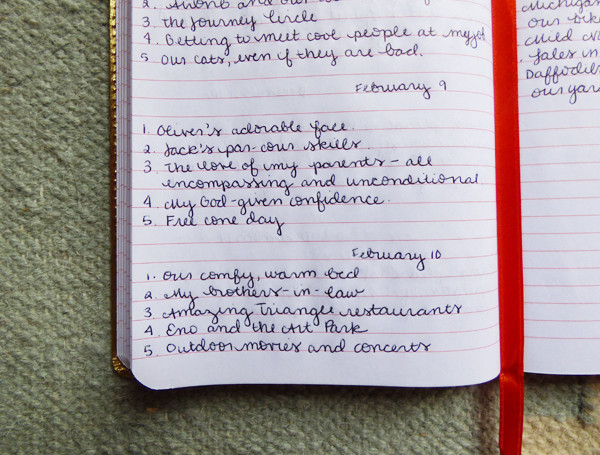 2.
3. The Journey Circle
4. Getting to meet cool people at my job
5. Our cats, even if they are bad.
February 9
1. Oliver's adorable face.
2. Jack's par-cour skills.
3. The love of my parents – all
encompassing and unconditional
4. My God-given confidence.
5. Free cone day
February 10
1. Our comfy, warm bed
2. My brothers-in-law
3. Amazing Triangle restaurants
4. Eno and the Art Park
5. Outdoor movies and concerts
Michigan
our
Mied
Jales in
Daffodils
our yar